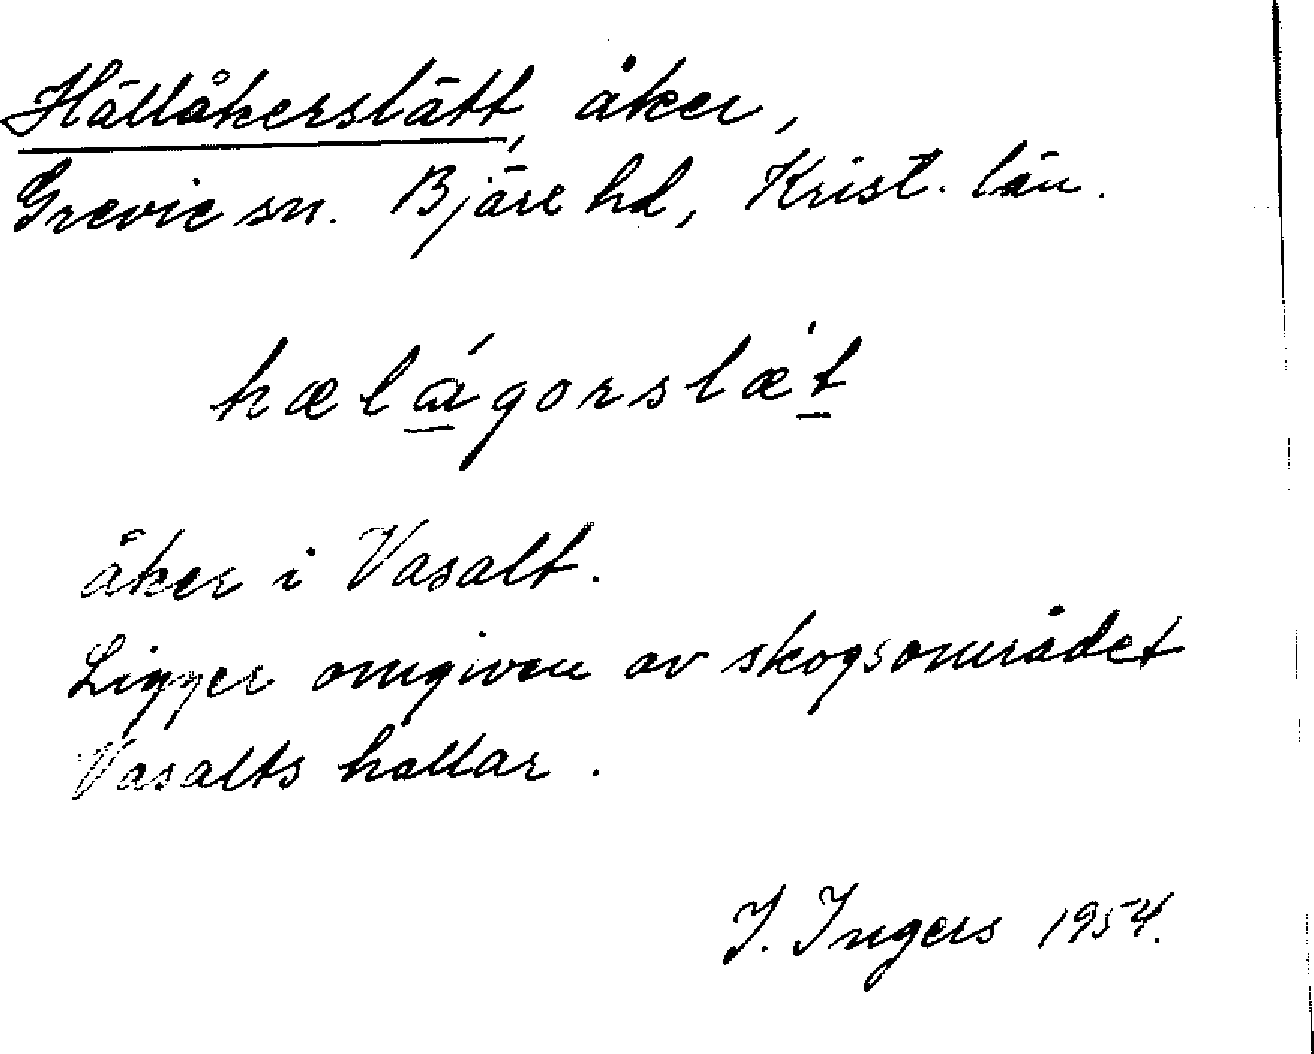 Hällåkerslätt, åker,
Grevie sn. Bjäre hd, Krist. län.
hælágorslæ't
åker i Vasalt.
Ligger omgiven av skogsområdet
Vasalts hallar.
I. Ingers 1954.